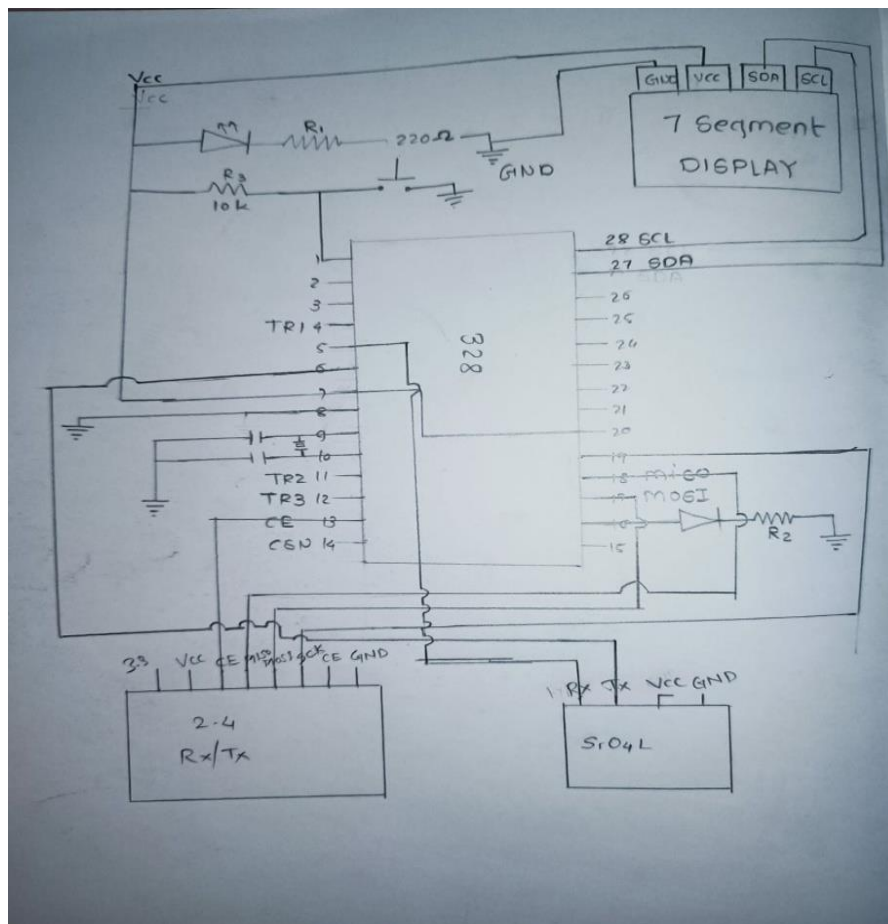 Vcc
Vcc
GND VCC SDA SCL
7 Segment
DISPLAY
R1 220Ω
GND
R3
10k
328
1
2
3
TR1 4
5
6
7
8
9
10
TR2 11
TR3 12
CE 13
CSN 14
28 SCL
27 SDA
SDA
26
25
24
23
22
21
20
19
18 MISO
17 MOSI
16
15
R2
3.3 VCC CE MISO MOSI SCK CE GND
2.4
Rx/Tx
Rx Tx VCC GND
Sr04L